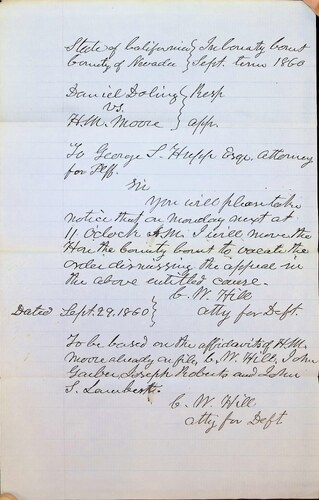 State of California } In County Court
County of Nevada } Sept. term 1860
Daniel Doling } Resp
vs.
H. M. Moore } app.
To George S. Hupp Esqr. Attorney
for Plff.
Sir
You will please take
notice that on Monday next at
11 Oclock A.M. I will move the
Hon the County Court to vacate the
order dismissing the appeal in
the above entitled cause.
C. W. Hill
Dated Sept. 29. 1860 } atty for Deft.
To be based on the affidavits of H.M.
Moore already on file, C. W. Hill, John
Garber, Joseph Roberts and John
S. Lambert.
C. W. Hill
atty for Deft.